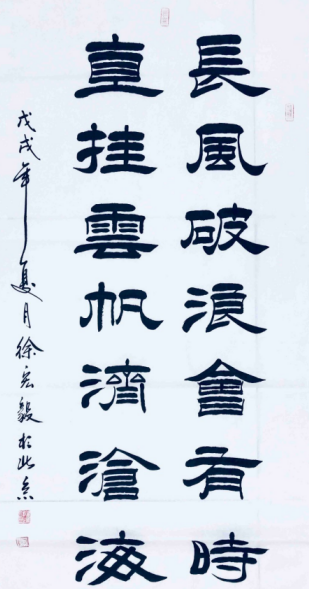 長風破浪會有時
直挂雲帆濟滄海
戊戌年夏月徐宏毅於北京